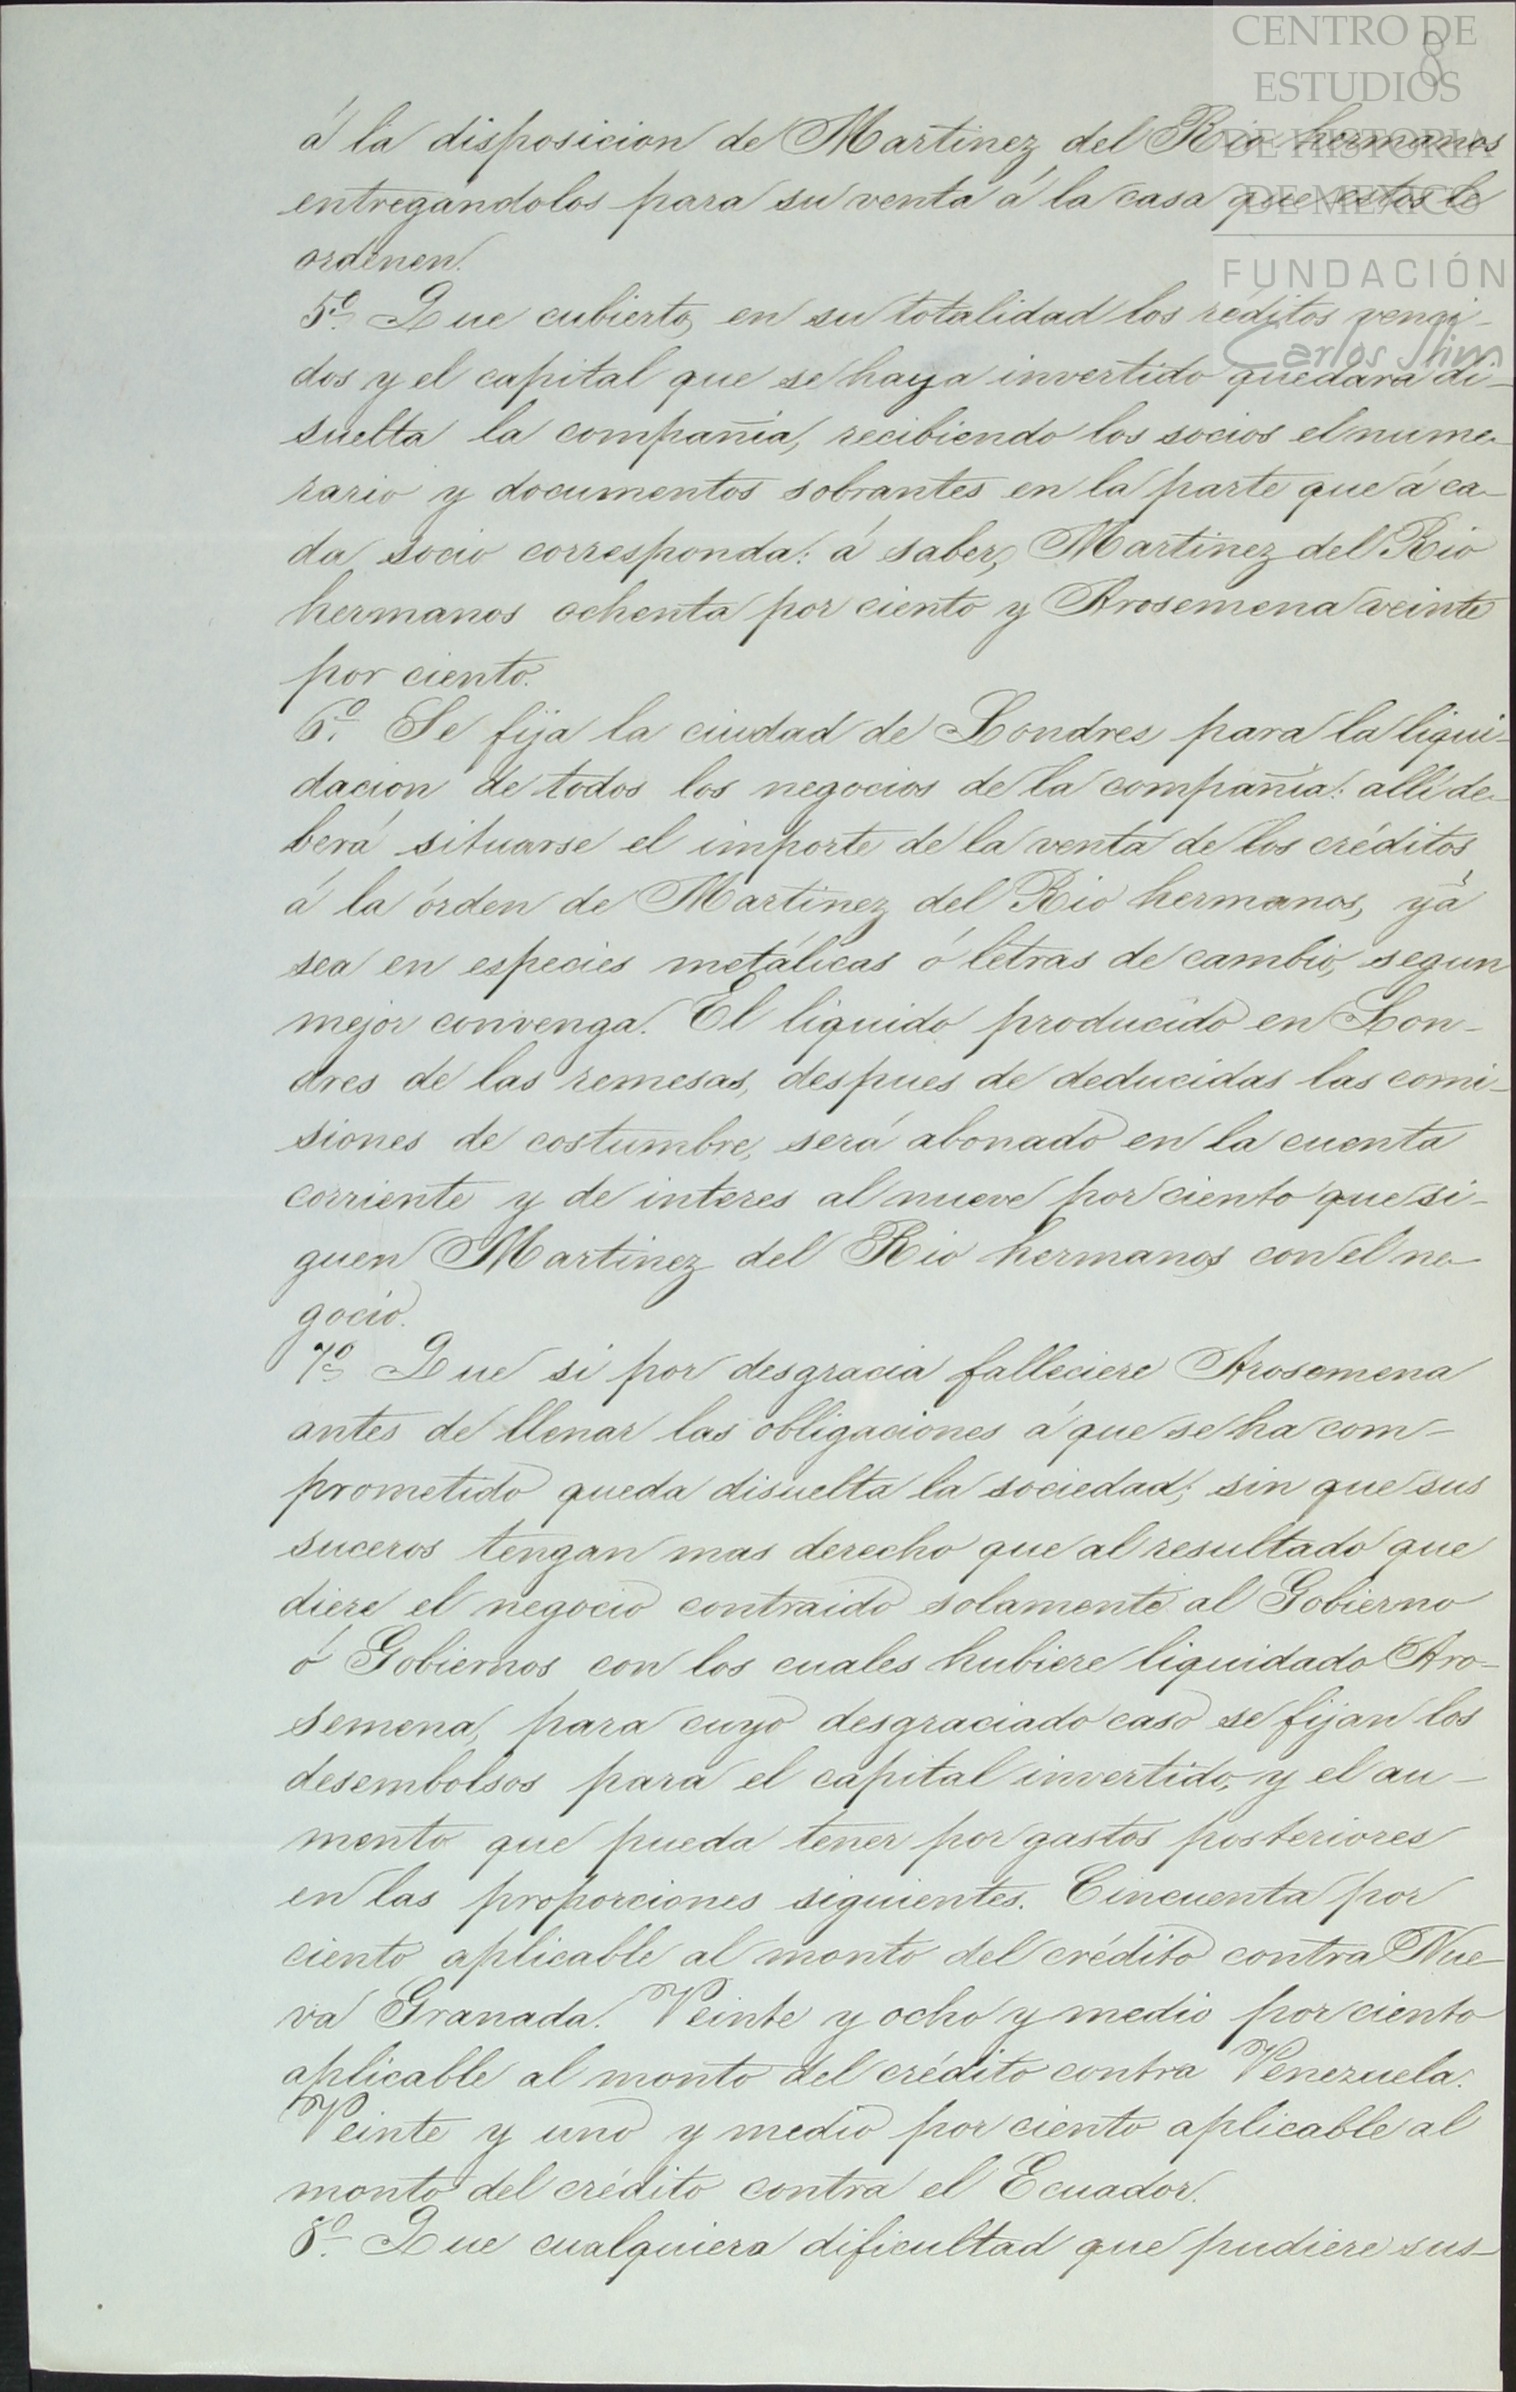 CENTRO DE
ESTUDIOS
DE HISTORIA
DE MEXICO
FUNDACIÓN
Carlos Slim
8
á la disposicion de Martinez del Rio hermanos
entregándolos para su venta á la casa que estos le
ordenen.
5º. Que cubierto, en su totalidad los réditos venci-
dos y el capital que se haya invertido quedará di-
suelta la compañía, recibiendo los socios el nume-
rario y documentos sobrantes en la parte que á ca-
da socio corresponda: á saber, Martinez del Rio
hermanos ochenta por ciento y Arosemena veinte
por ciento.
6º. Se fija la ciudad de Londres para la liqui-
dacion de todos los negocios de la compañía: allí de-
berá situarse el importe de la venta de los créditos
á la órden de Martinez del Rio hermanos, yá
sea en especies metálicas ó letras de cambio, segun
mejor convenga. El líquido producido en Lon-
dres de las remesas, despues de deducidas las comi-
siones de costumbre, será abonado en la cuenta
corriente y de interes al nueve por ciento que si-
guen Martinez del Rio hermanos con el ne-
gocio.
7º. Que si por desgracia falleciere Arosemena
antes de llenar las obligaciones á que se ha com-
prometido queda disuelta la sociedad; sin que sus
suceros tengan mas derecho que al resultado que
diere el negocio contraido solamente al Gobierno
ó Gobiernos con los cuales hubiere liquidado Aro-
semena, para cuyo desgraciado caso se fijan los
desembolsos para el capital invertido, y el au-
mento que pueda tener por gastos posteriores
en las proporciones siguientes. Cincuenta por
ciento aplicable al monto del crédito contra Nue-
va Granada. Veinte y ocho y medio por ciento
aplicable al monto del crédito contra Venezuela.
Veinte y uno y medio por ciento aplicable al
monto del crédito contra el Ecuador.
8º. Que cualquiera dificultad que pudiere sus-